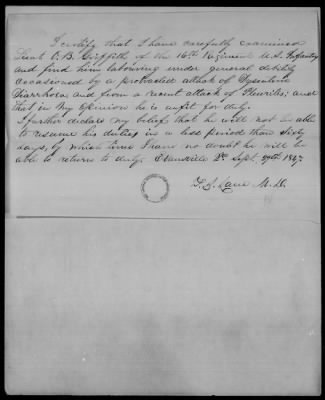 I certify that I have carefully examined
Lieut P. B. Griffith of the 16th Regiment U.S. Infantry
and find him labouring under general debility
occasioned by a protracted attack of Dysenteric
Diarrhoea and from a recent attack of Pleuritis; and
that in my opinion he is unfit for duty.
I further declare my belief that he will not be able
to resume his duties in a less period than Sixty
days, by which time I have no doubt he will be
able to return to duty. Evansville Sept. 29th 1847
Lane M.D.